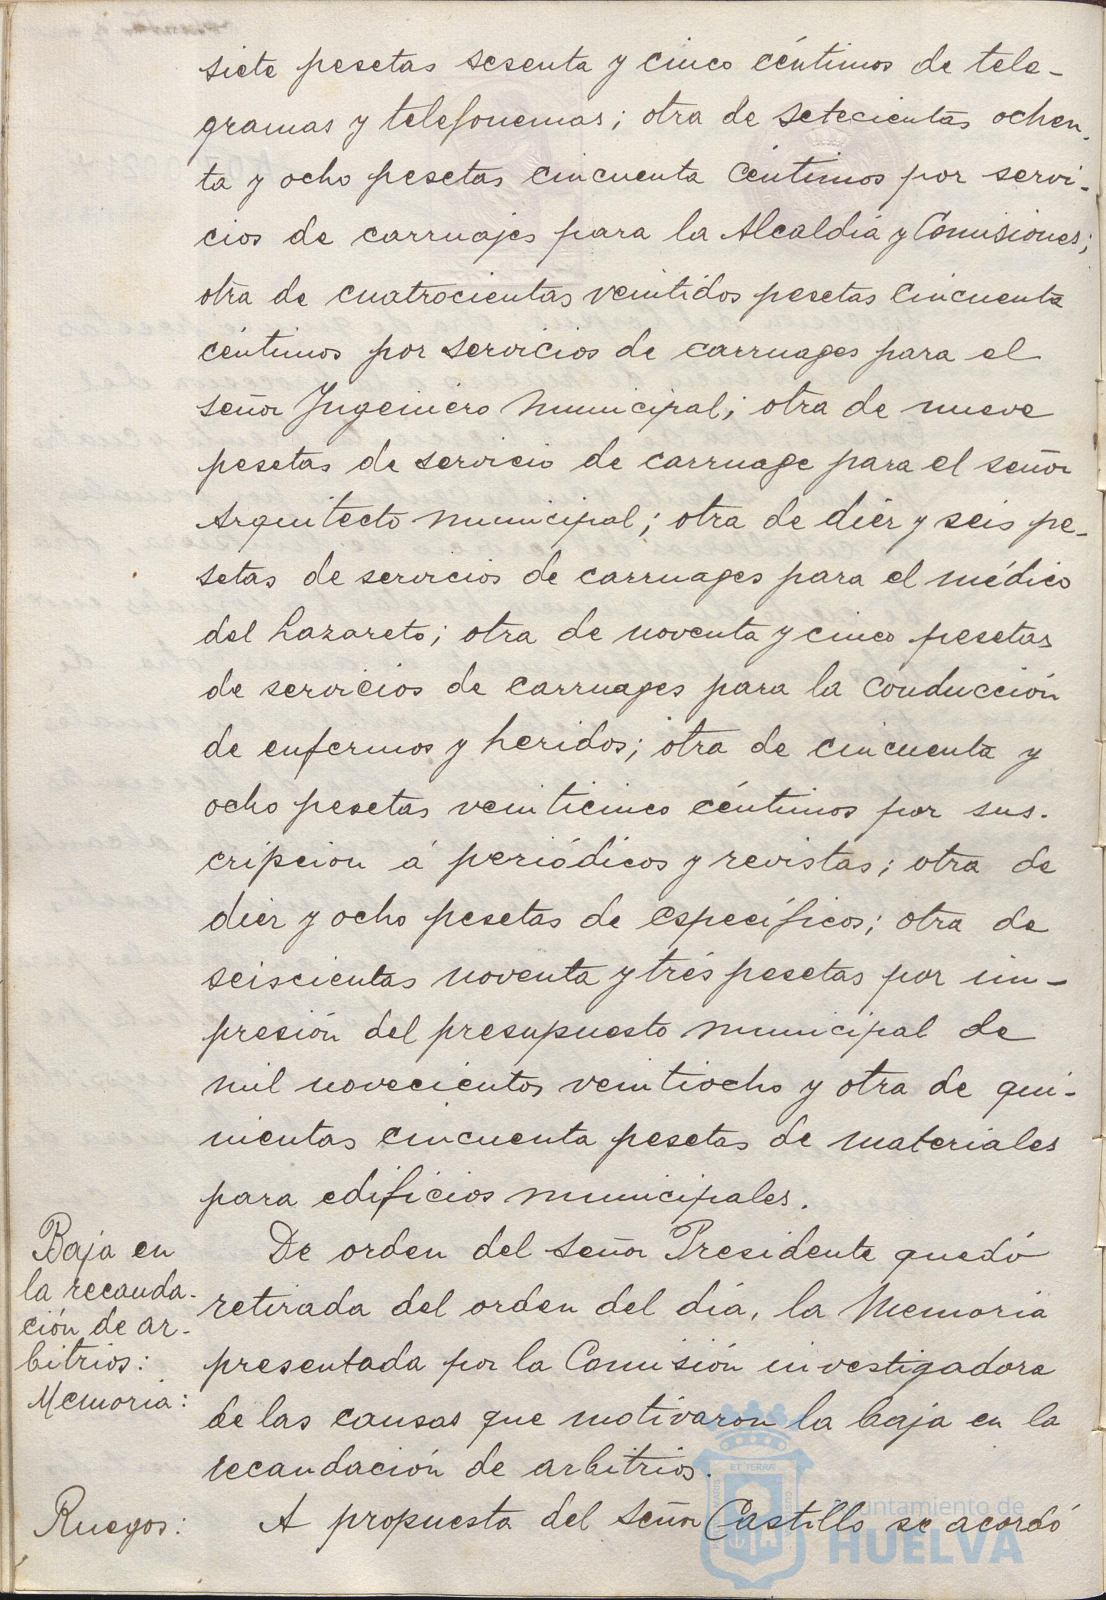 siete pesetas sesenta y cinco céntimos de tele-
gramas y telefonemas; otra de setecientas ochen-
ta y ocho pesetas cincuenta céntimos por servi-
cios de carruajes para la Alcaldía y Comisiones;
otra de cuatrocientas veintidos pesetas cincuenta
céntimos por servicios de carruages para el
señor Ingeniero Municipal; otra de nueve
pesetas de servicio de carruage para el señor
Arquitecto municipal; otra de diez y seis pe-
setas de servicios de carruages para el médico
del Lazareto; otra de noventa y cinco pesetas
de servicios de carruages para la conducción
de enfermos y heridos; otra de cincuenta y
ocho pesetas veinticinco céntimos por sus-
cripcion á periódicos y revistas; otra de
diez y ocho pesetas de específicos; otra de
seiscientas noventa y trés pesetas por im-
presión del presupuesto municipal de
mil novecientos veintiocho y otra de qui-
nientas cincuenta pesetas de materiales
para edificios municipales.
Baja en
la recauda-
ción de ar-
bitrios:
Memoria:
De orden del señor Presidente quedó
retirada del orden del día, la Memoria
presentada por la Comisión investigadora
de las causas que motivaron la baja en la
recaudación de arbitrios.
Ruegos:
A propuesta del señor Castillo se acordó
Ayuntamiento de
HUELVA